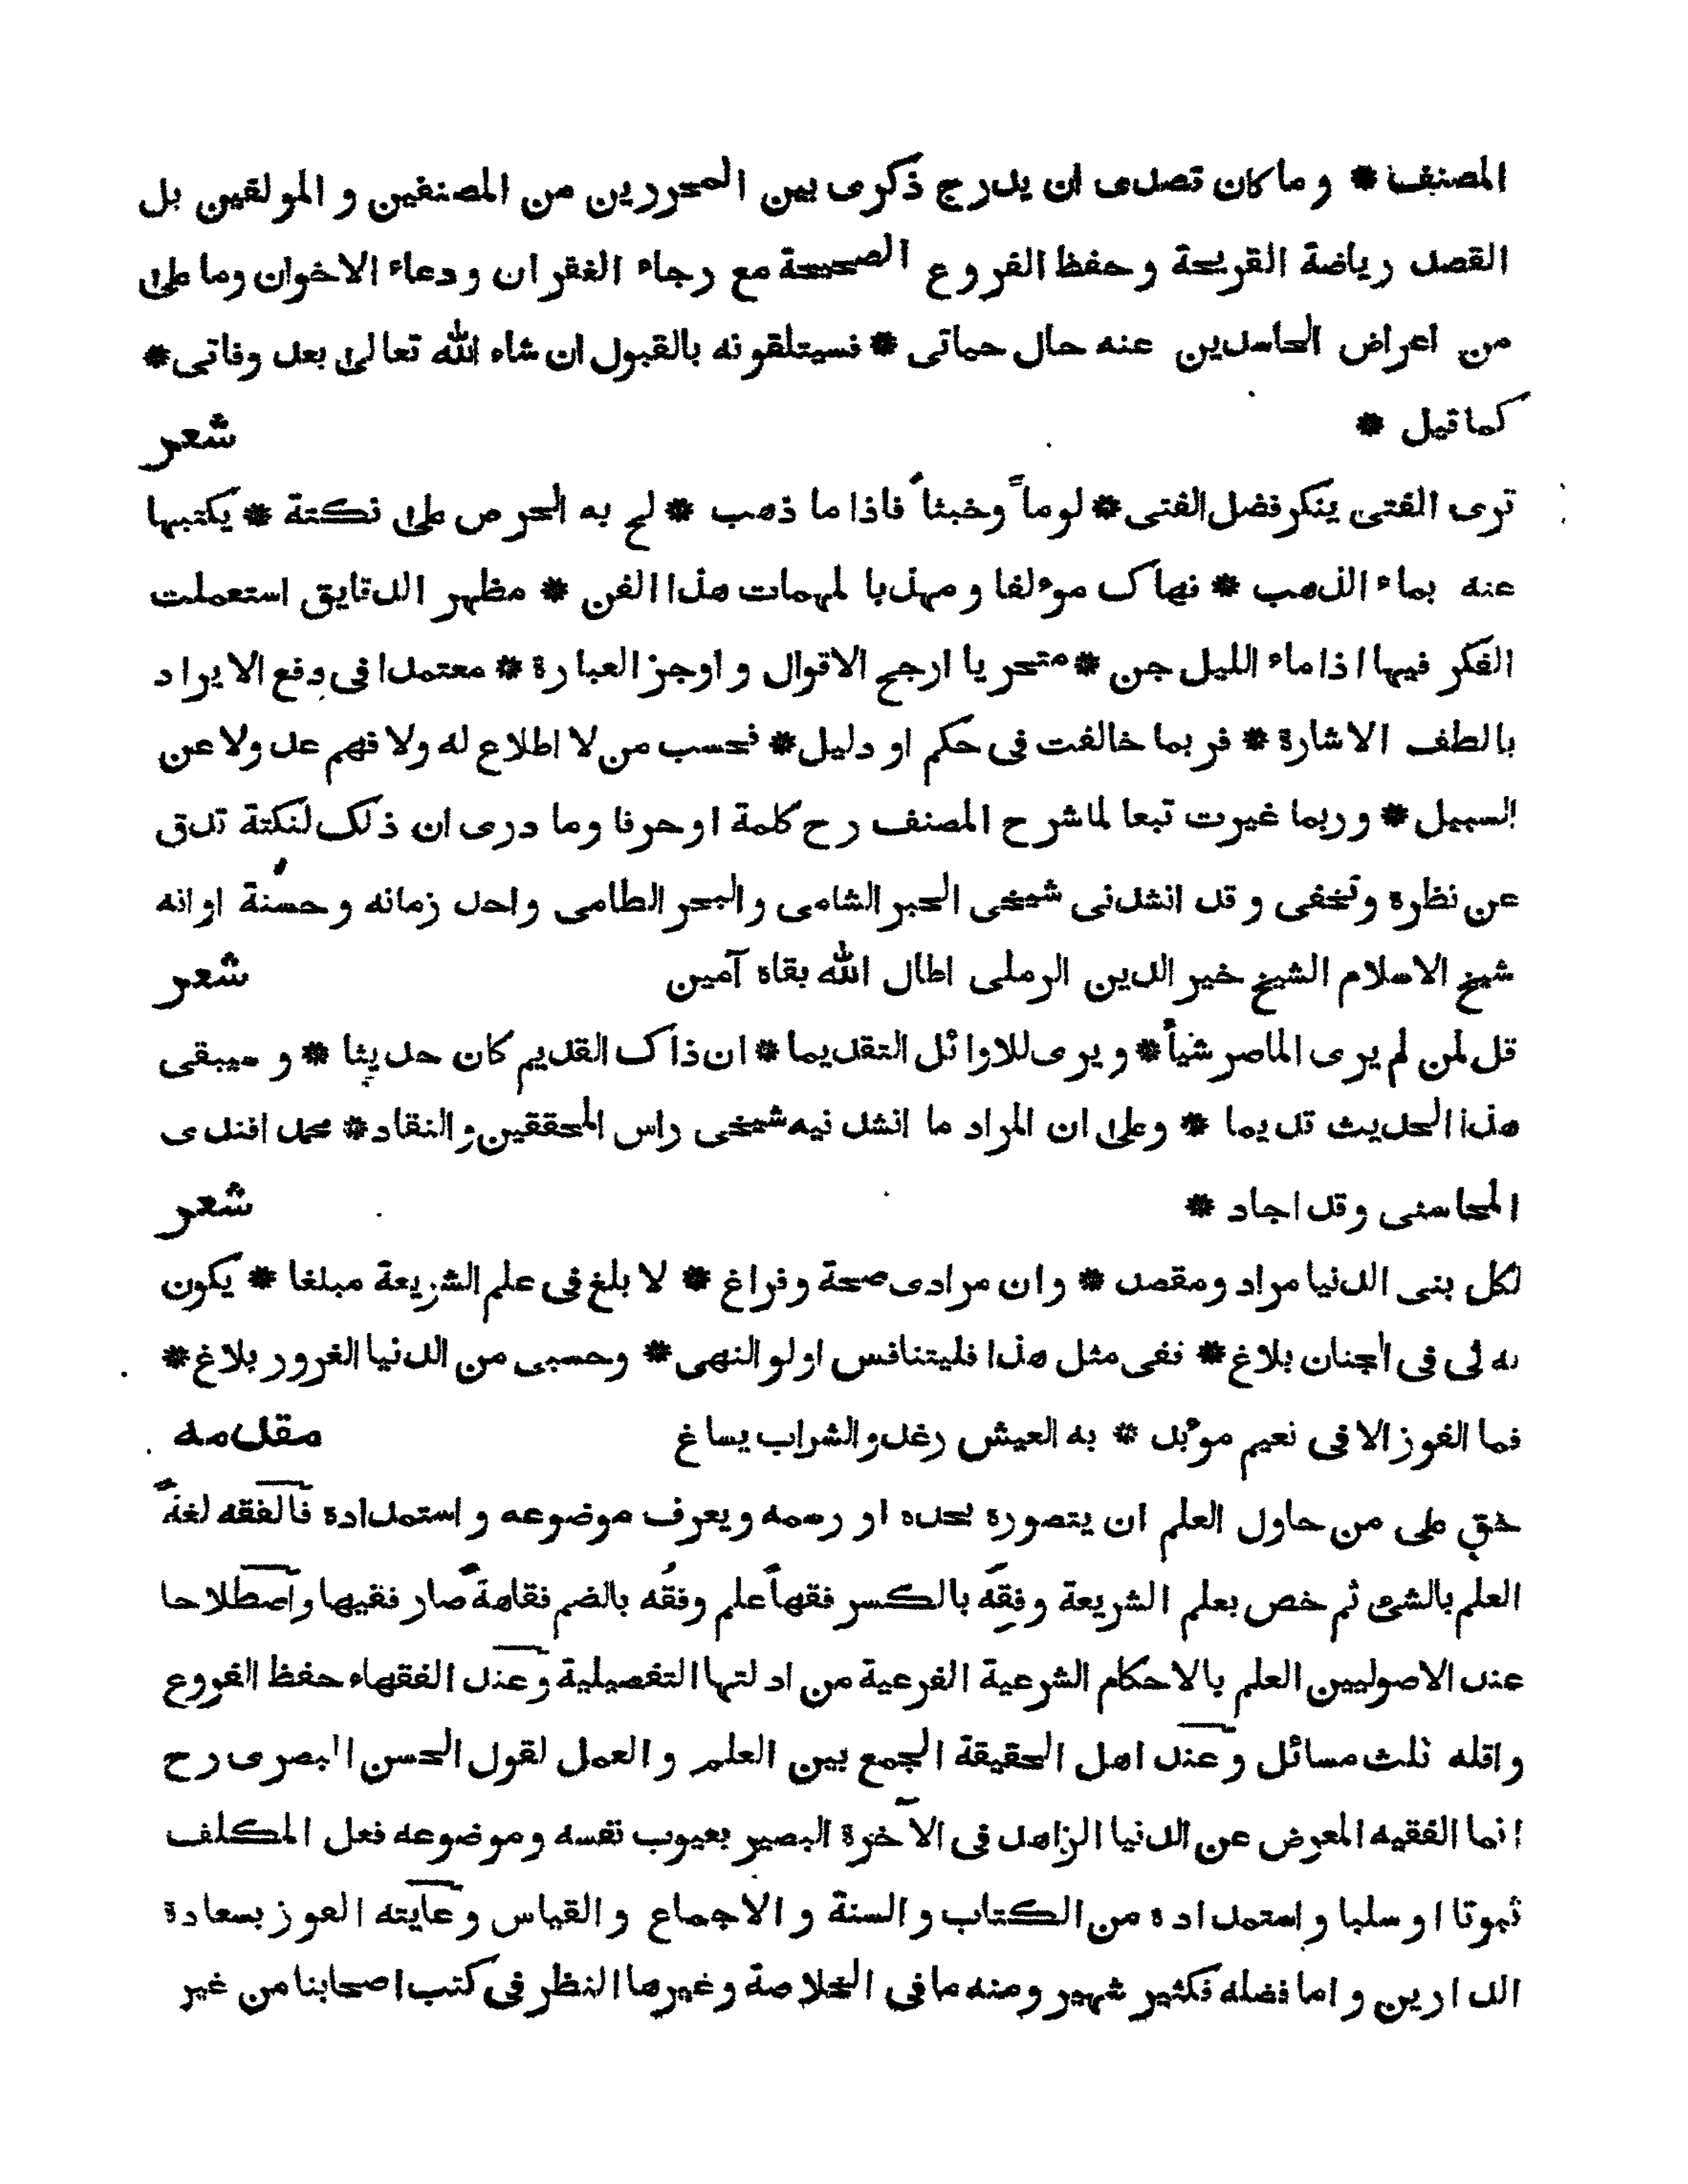 المصنف * وما كان قصدى ان يدرج ذكرى بين المحررين من المصنفين و المولفين بل
القصد رياضة القريحة وحفظ الفروع الصحيحة مع رجاء الغفران ودعاء الاخوان وما على
من اعراض الحاسدين عنه حال حياتى * فسيتلقونه بالقبول ان شاء الله تعالى بعد وفاتى *
كما قيل * شعر
ترى الفتى ينكر فضل الفتى * لوماً وخبثاً فاذا ما ذهب * لج به الحرص على نكتة * يكتبها
عنه بماء الذهب * فهاك موٴلفا ومهذبا لمهمات هذا الفن * مظهر الدقايق استعملت
الفكر فيها اذا ماء الليل جن * متحريا ارجح الاقوال و اوجز العبارة * معتمدا فى دفع الايراد
بالطف الاشارة * فربما خالفت فى حكم او دليل * فحسب من لا اطلاع له ولا فهم عدولا عن
السبيل * وربما غيرت تبعا لما شرح المصنف رح كلمة او حرفا وما درى ان ذلك لنكتة تدق
عن نظره وتخفى وقد انشدنى شيخى الحبر الشامى و البحر الطامى واحد زمانه وحسنة اوانه
شيخ الاسلام الشيخ خير الدين الرملى اطال الله بقاه آمين شعر
قل لمن لم يرى المعاصر شيأً * ويرى للاوائل التقديما * ان ذاك القديم كان حديثا * و سيبقى
هذا الحديث قديما * وعلى ان المراد ما انشدنيه شيخى راس المحققين و النقاد * محمد افندى
المحاسنى وقد اجاد * شعر
لكل بنى الدنيا مراد ومقصد * وان مرادى صحة وفراغ * لابلغ فى علم الشريعة مبلغا * يكون
به لى فى الجنان بلاغ * ففى مثل هذا فليتنافس اولو النهى * وحسبى من الدنيا الغرور بلاغ *
فما الفوز الا فى نعيم موٴبد * به العيش رغد و الشراب يساغ مقدمه
حق على من حاول العلم ان يتصوره بحده او رسمه ويعرف موضوعه و استمداده فالفقه لغةً
العلم بالشئ ثم خص بعلم الشريعة وفقِه بالكسر فقهاً علم وفقُه بالضم فقاهةً صار فقيها واصطلاحا
عند الاصوليين العلم بالاحكام الشرعية الفرعية من ادلتها التفصيلية وعند الفقهاء حفظ الفروع
واقله ثلث مسائل وعند اهل الحقيقة الجمع بين العلم و العمل لقول الحسن البصرى رح
انما الفقيه المعرض عن الدنيا الزاهد فى الآخرة البصير بعيوب نفسه وموضوعه فعل المكلف
ثبوتا او سلبا و استمداده من الكتاب و السنة و الاجماع و القياس وغايته الفوز بسعادة
الدارين و اما فضله فكثير شهير ومنه ما فى الخلاصة وغيرها النظر فى كتب اصحابنا من غير